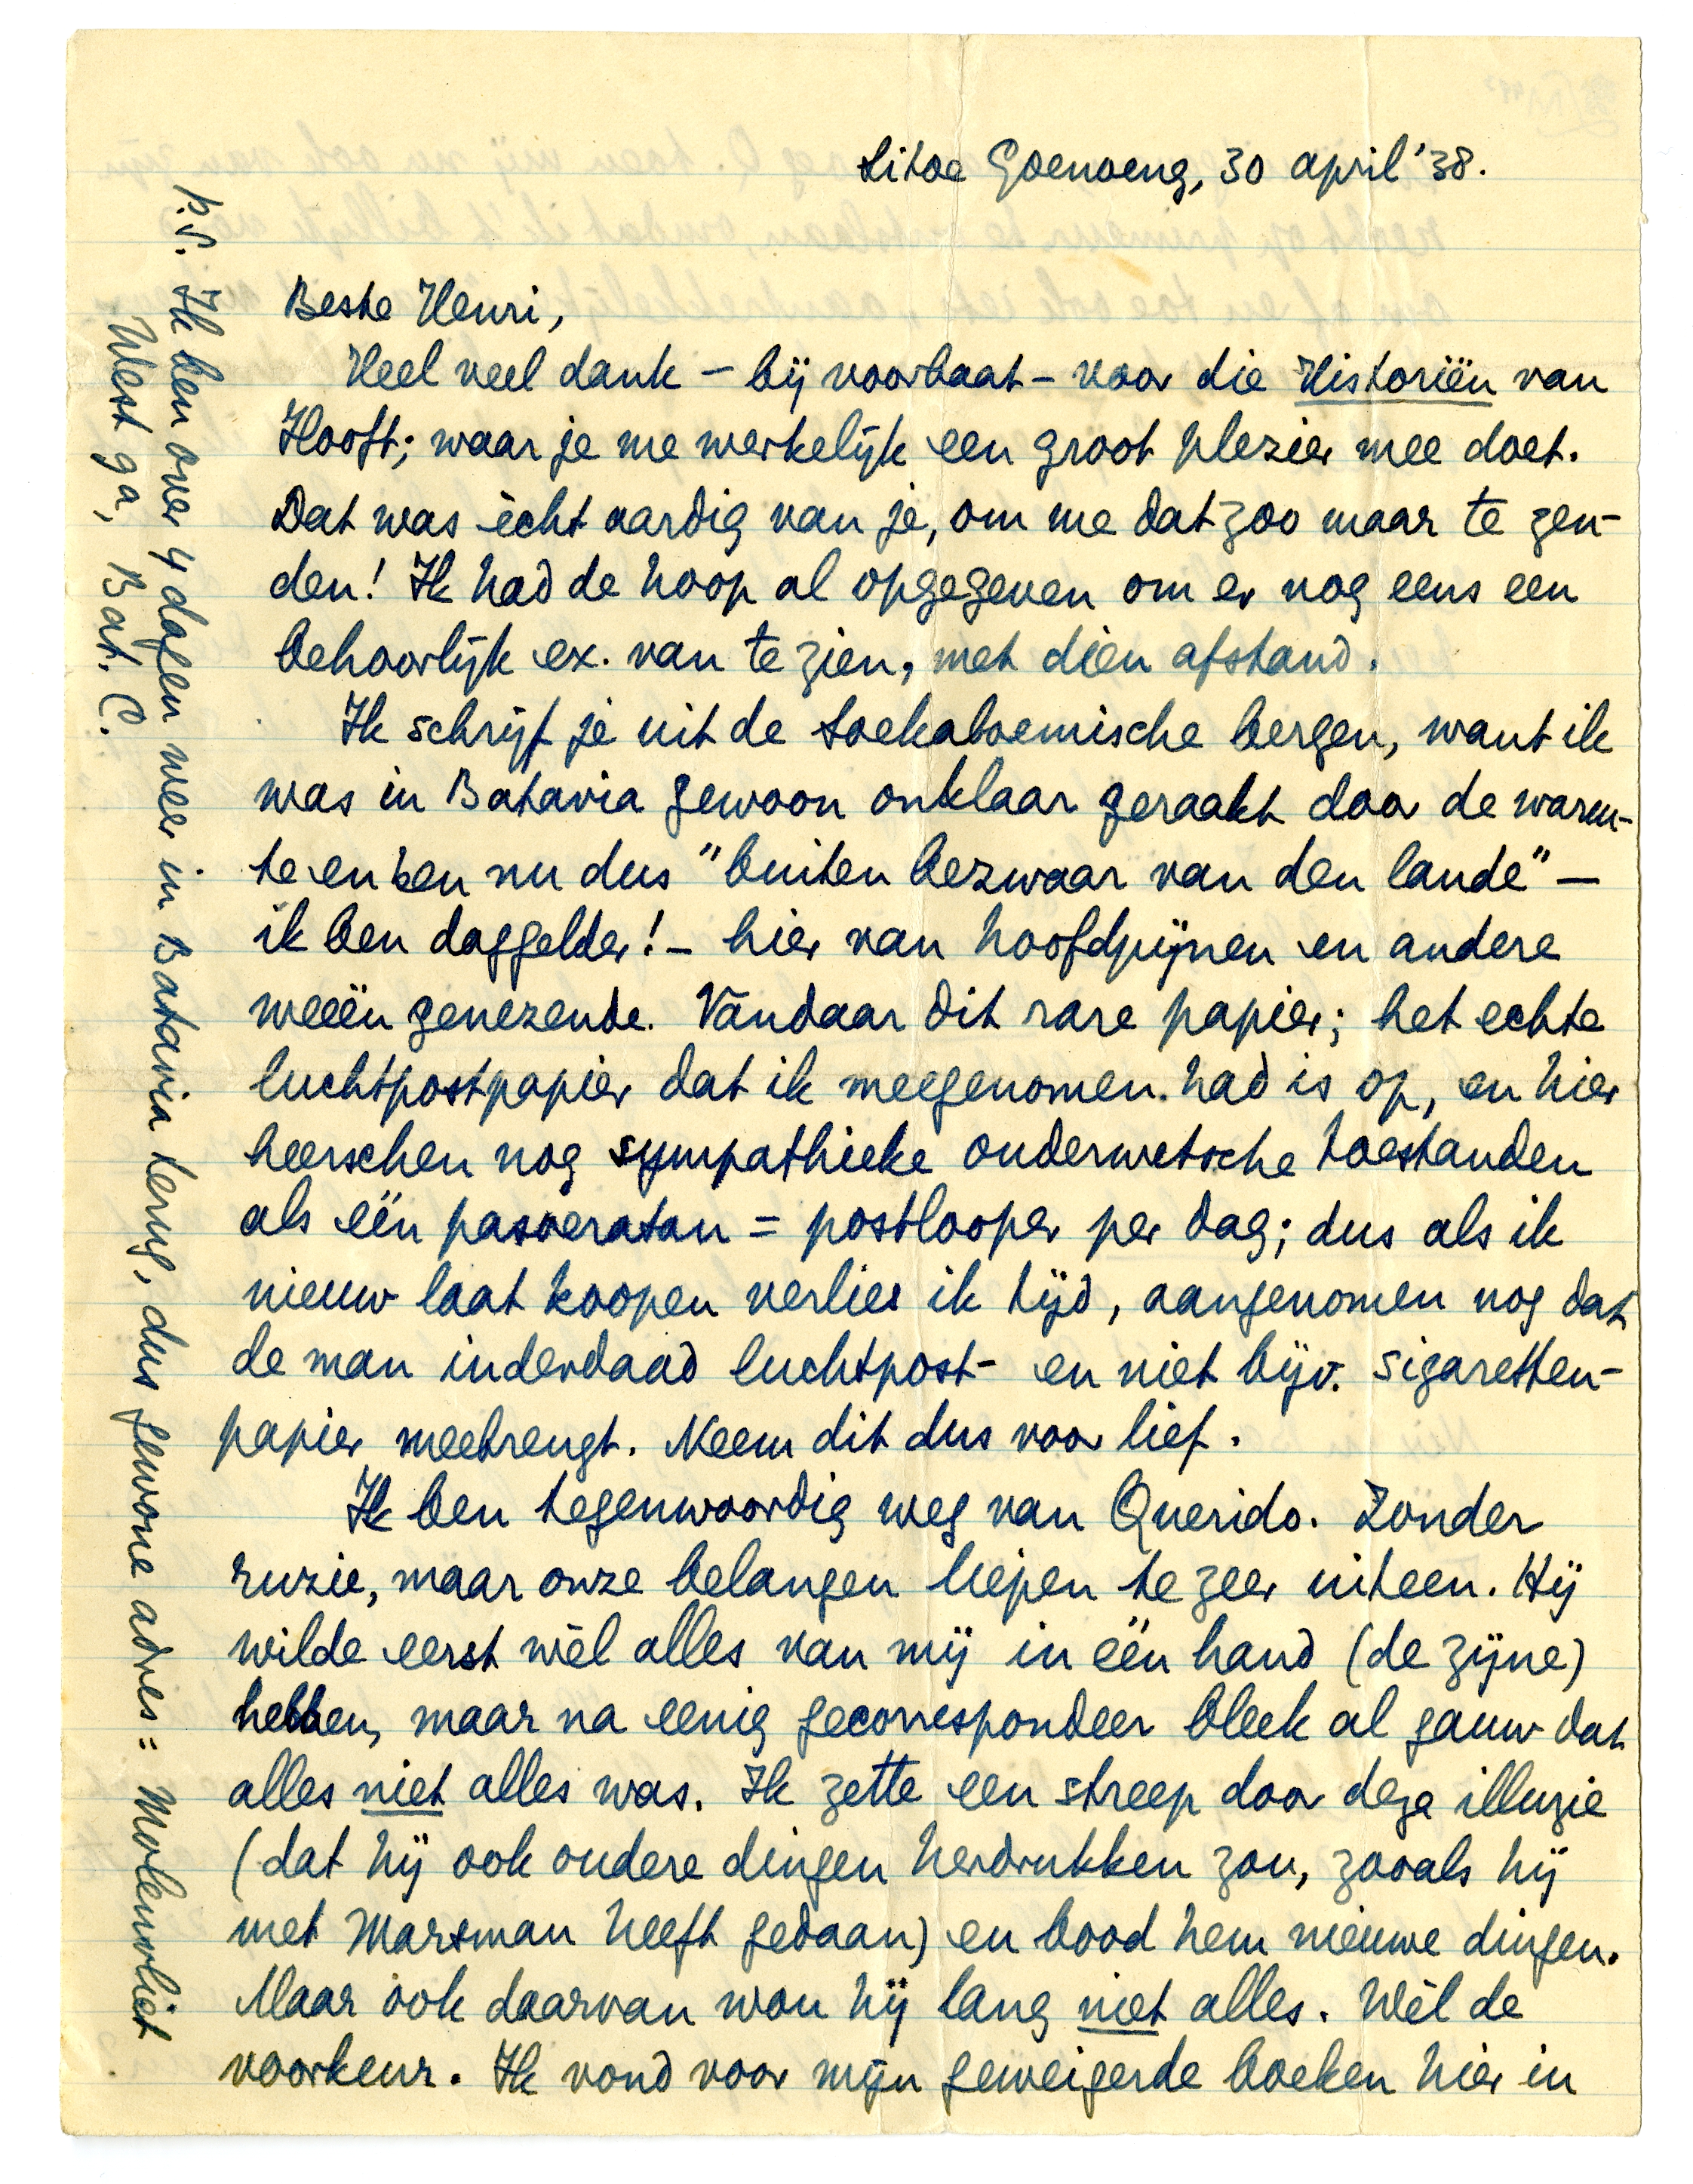 Sitoe Goenoeng, 30 april '38.
Beste Henri,
Heel veel dank – bij voorbaat – voor die Historiën van
Hooft; waar je me werkelijk een groot plezier mee doet.
Dat was ècht aardig van je, om me dat zoo maar te zen-
den! Ik had de hoop al opgegeven om er nog eens een
behoorlijk ex. van te zien, met dien afstand.
Ik schrijf je uit de Soekaboemische bergen, want ik
was in Batavia gewoon onklaar geraakt door de warm-
te en ben nu dus "buiten bezwaar van den lande" –
ik ben daggelder! – hier van hoofdpijnen en andere
weeën genezende. Vandaar dit rare papier; het echte
luchtpostpapier dat ik meegenomen had is op, en hier
heerschen nog sympathieke ouderwetsche toestanden
als één pasoeratan = postlooper per dag; dus als ik
nieuw laat koopen verlies ik tijd, aangenomen nog dat
de man inderdaad luchtpost- en niet bijv. sigaretten-
papier meebrengt. Neem dit dus voor lief.
Ik ben tegenwoordig weg van Querido. Zonder
ruzie, maar onze belangen liepen te zeer uiteen. Hij
wilde eerst wèl alles van mij in één hand (de zijne)
hebben, maar na eenig gecorrespondeer bleek al gauw dat
alles niet alles was. Ik zette een streep door deze illuzie
(dat hij ook oudere dingen herdrukken zou, zooals hij
met Marsman heeft gedaan) en bood hem nieuwe dingen.
Maar ook daarvan wou hij lang niet alles. Wèl de
voorkeur. Ik vond voor mijn geweigerde boeken hier in
P.S. Ik ben over 4 dagen weer in Batavia terug, dus gewone adres: Molenvliet
West 9a, Bat. C.